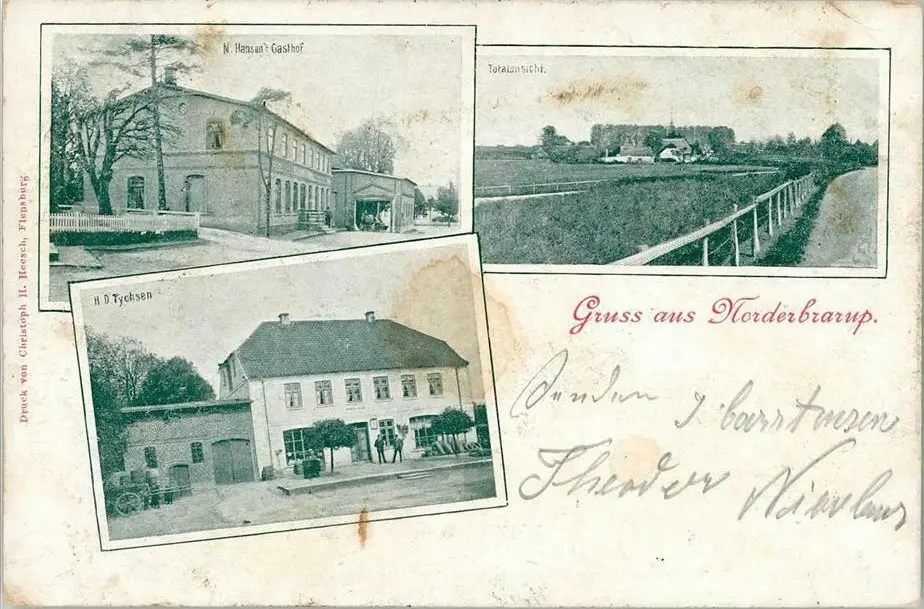 N. Hansen's Gasthof
Totalansicht.
H. D. Tychsen
Gruss aus Norderbrarup.
Senden
Theodor
Druck von Christoph H. Heesch, Flensburg